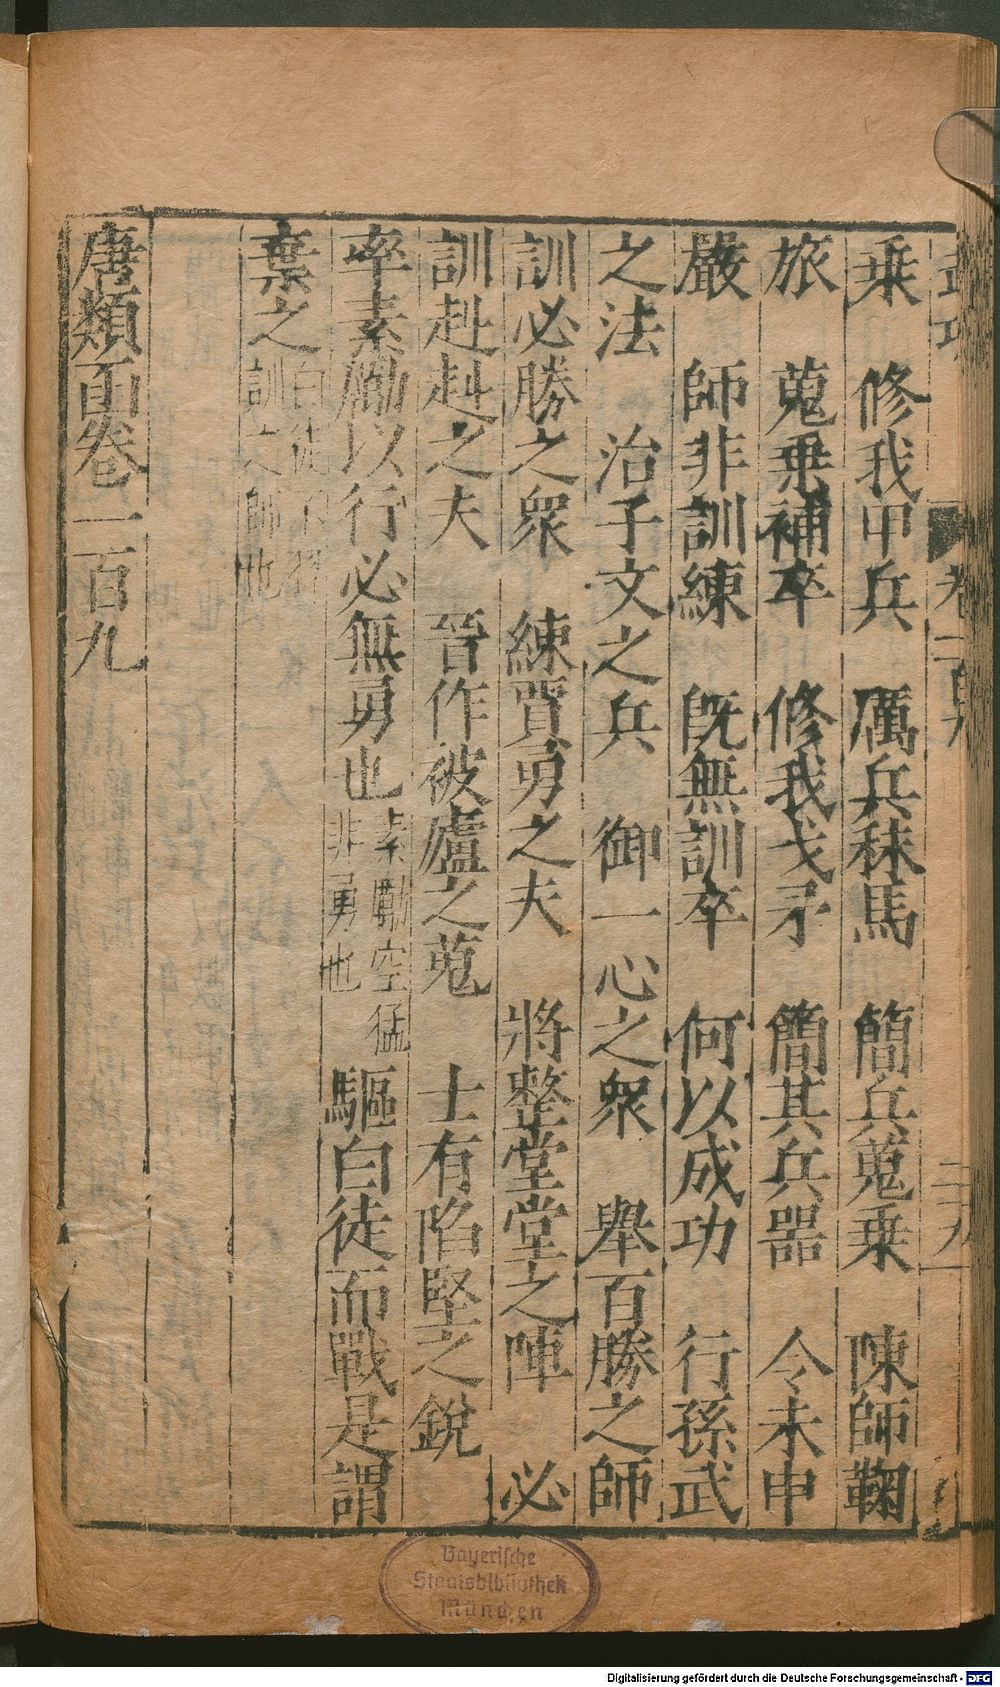 卷一百九
二十九
乗　修我甲兵　厲兵秣馬　簡兵蒐乗　陳師鞠
旅　蒐乗補卒　修我戈矛　簡其兵器　令未申
嚴　師非訓練　旣無訓卒　何以成功　行孫武
之法　治子文之兵　御一心之衆　舉百勝之師
訓必勝之衆　練賈勇之夫　將整堂堂之陣　必
訓赳赳之夫　晉作被廬之蒐　士有陷堅之銳
卒素勵以行必無勇也素勵空猛非勇也　驅白徒而戰是謂
棄之白徒不習訓之師也
唐類函卷一百九
Bayerische
Staatsbibliothek
München
Digitalisierung gefördert durch die Deutsche Forschungsgemeinschaft - DFG